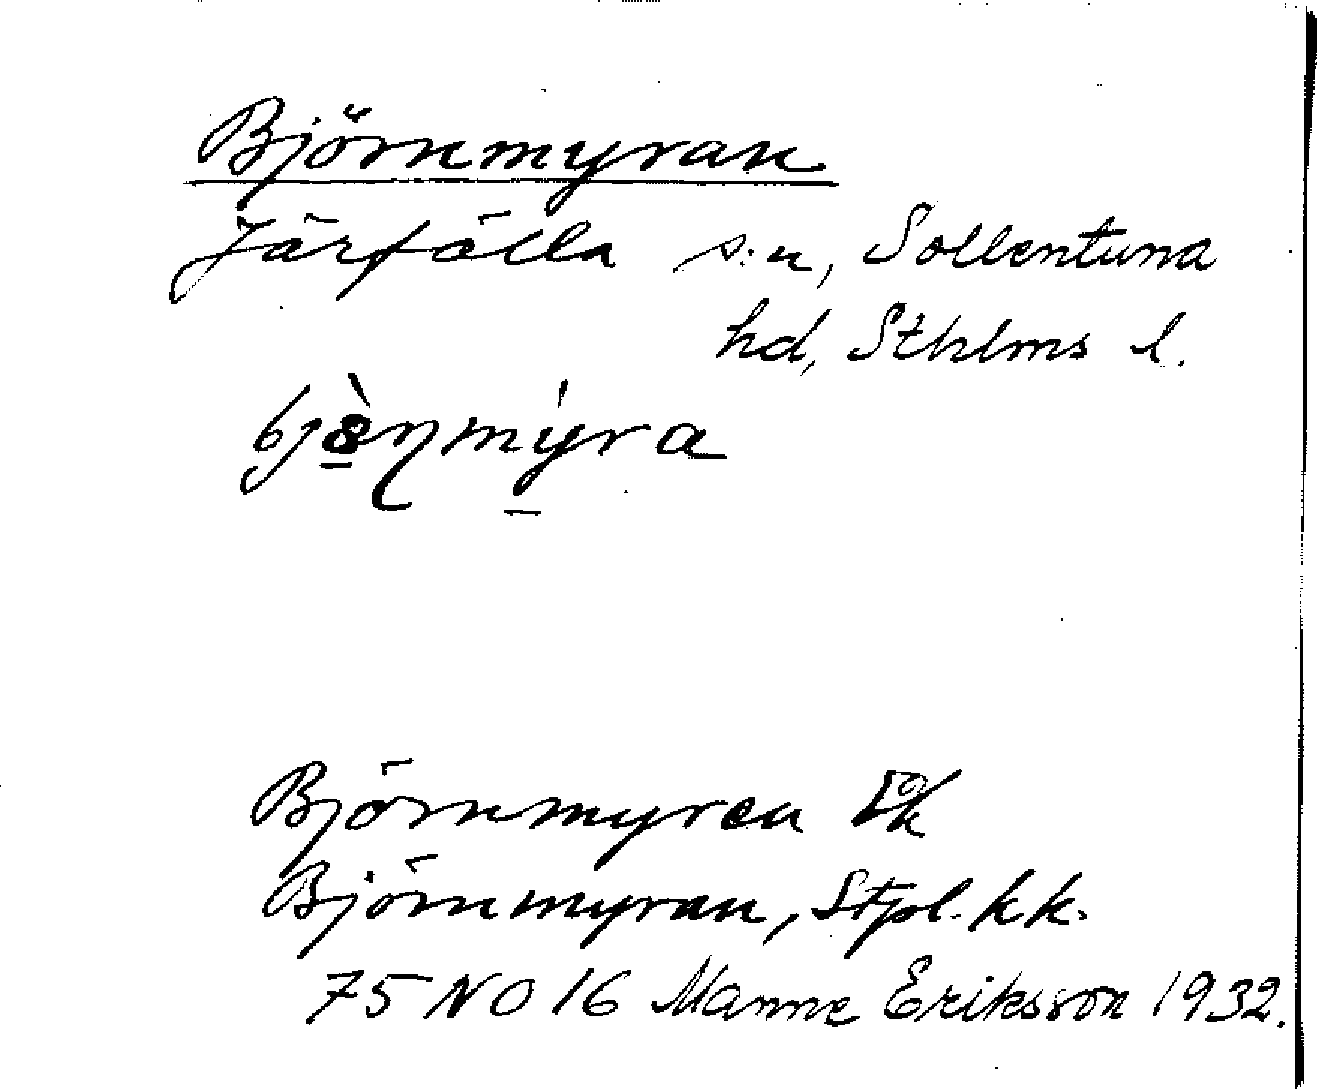 Björnmyran
Järfälla s:n, Sollentuna
hd, Sthlms l.
Björnmyran
Björnmyran, Stpl. kk.
75 NO 16 Manne Eriksson 1932.